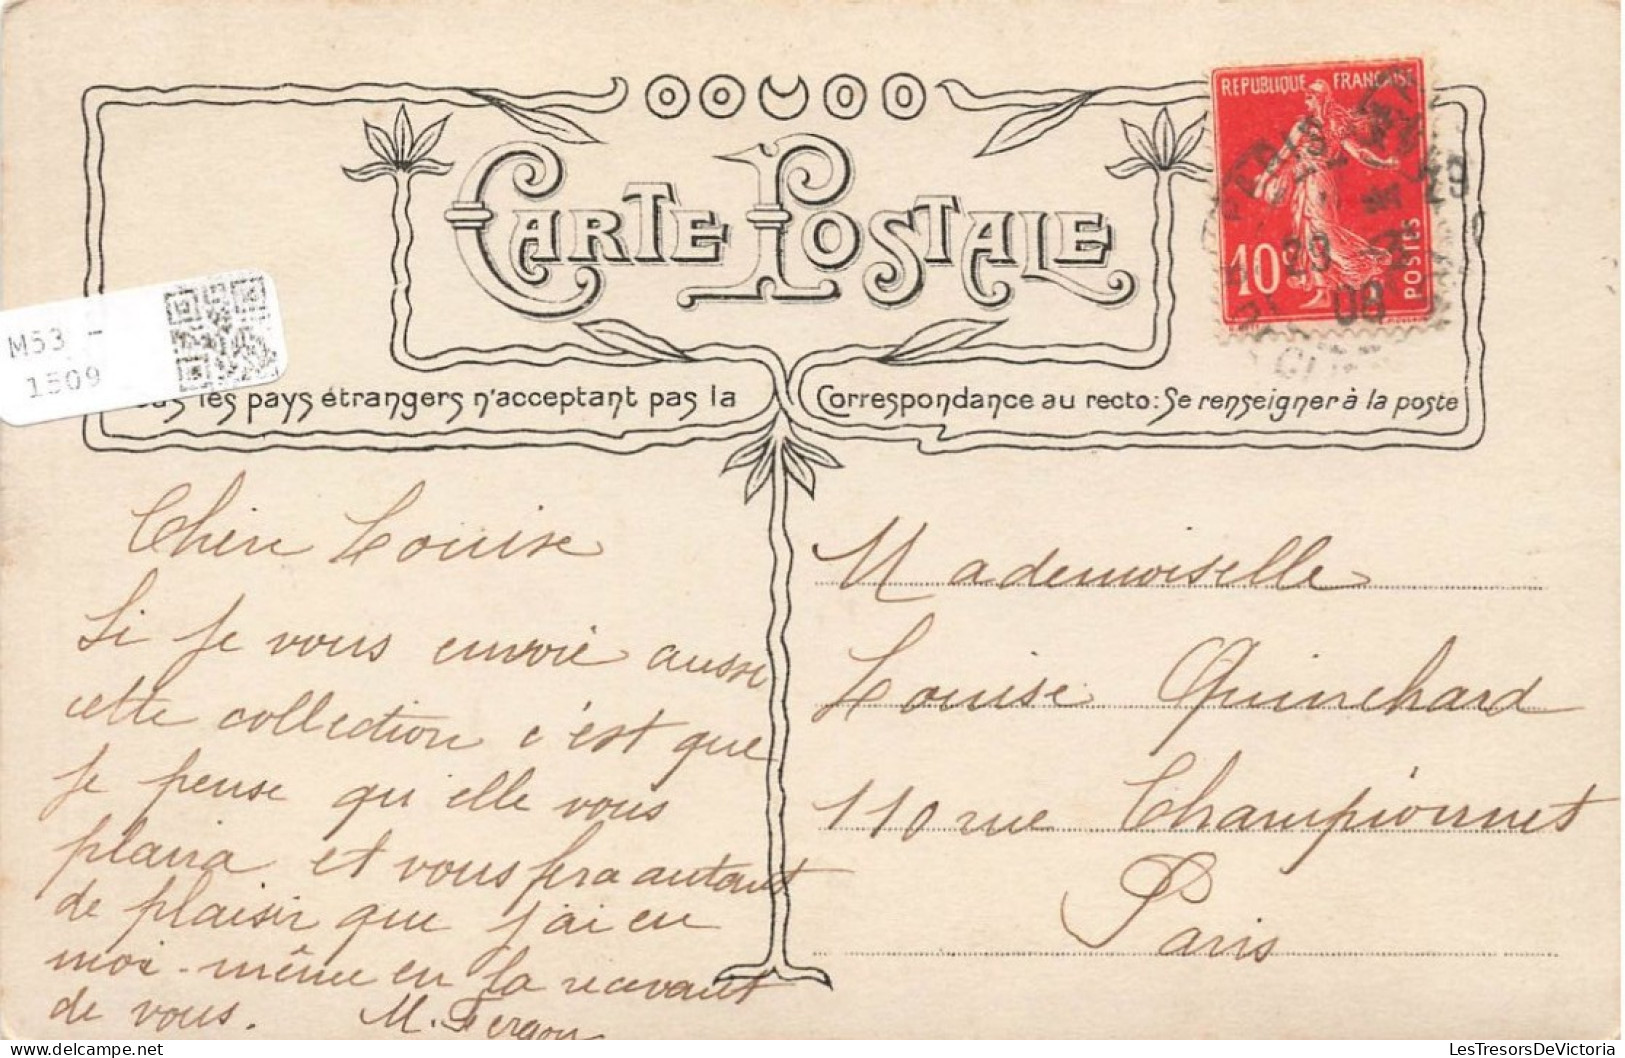 CARTE POSTALE
REPUBLIQUE FRANÇAISE
10c
POSTES
PARIS
08
M53 -
1509
les pays étrangers n'acceptant pas la Correspondance au recto: Se renseigner à la poste
Chère Louise
Si je vous envoie aussi
cette collection c'est que
je pense qu'elle vous
plaira et vous fera autant
de plaisir que j'ai eu
moi-même en la recevant
de vous. M.
Mademoiselle
Louise Quinchard
110 rue Championnet
Paris
LesTresorsDeVictoria